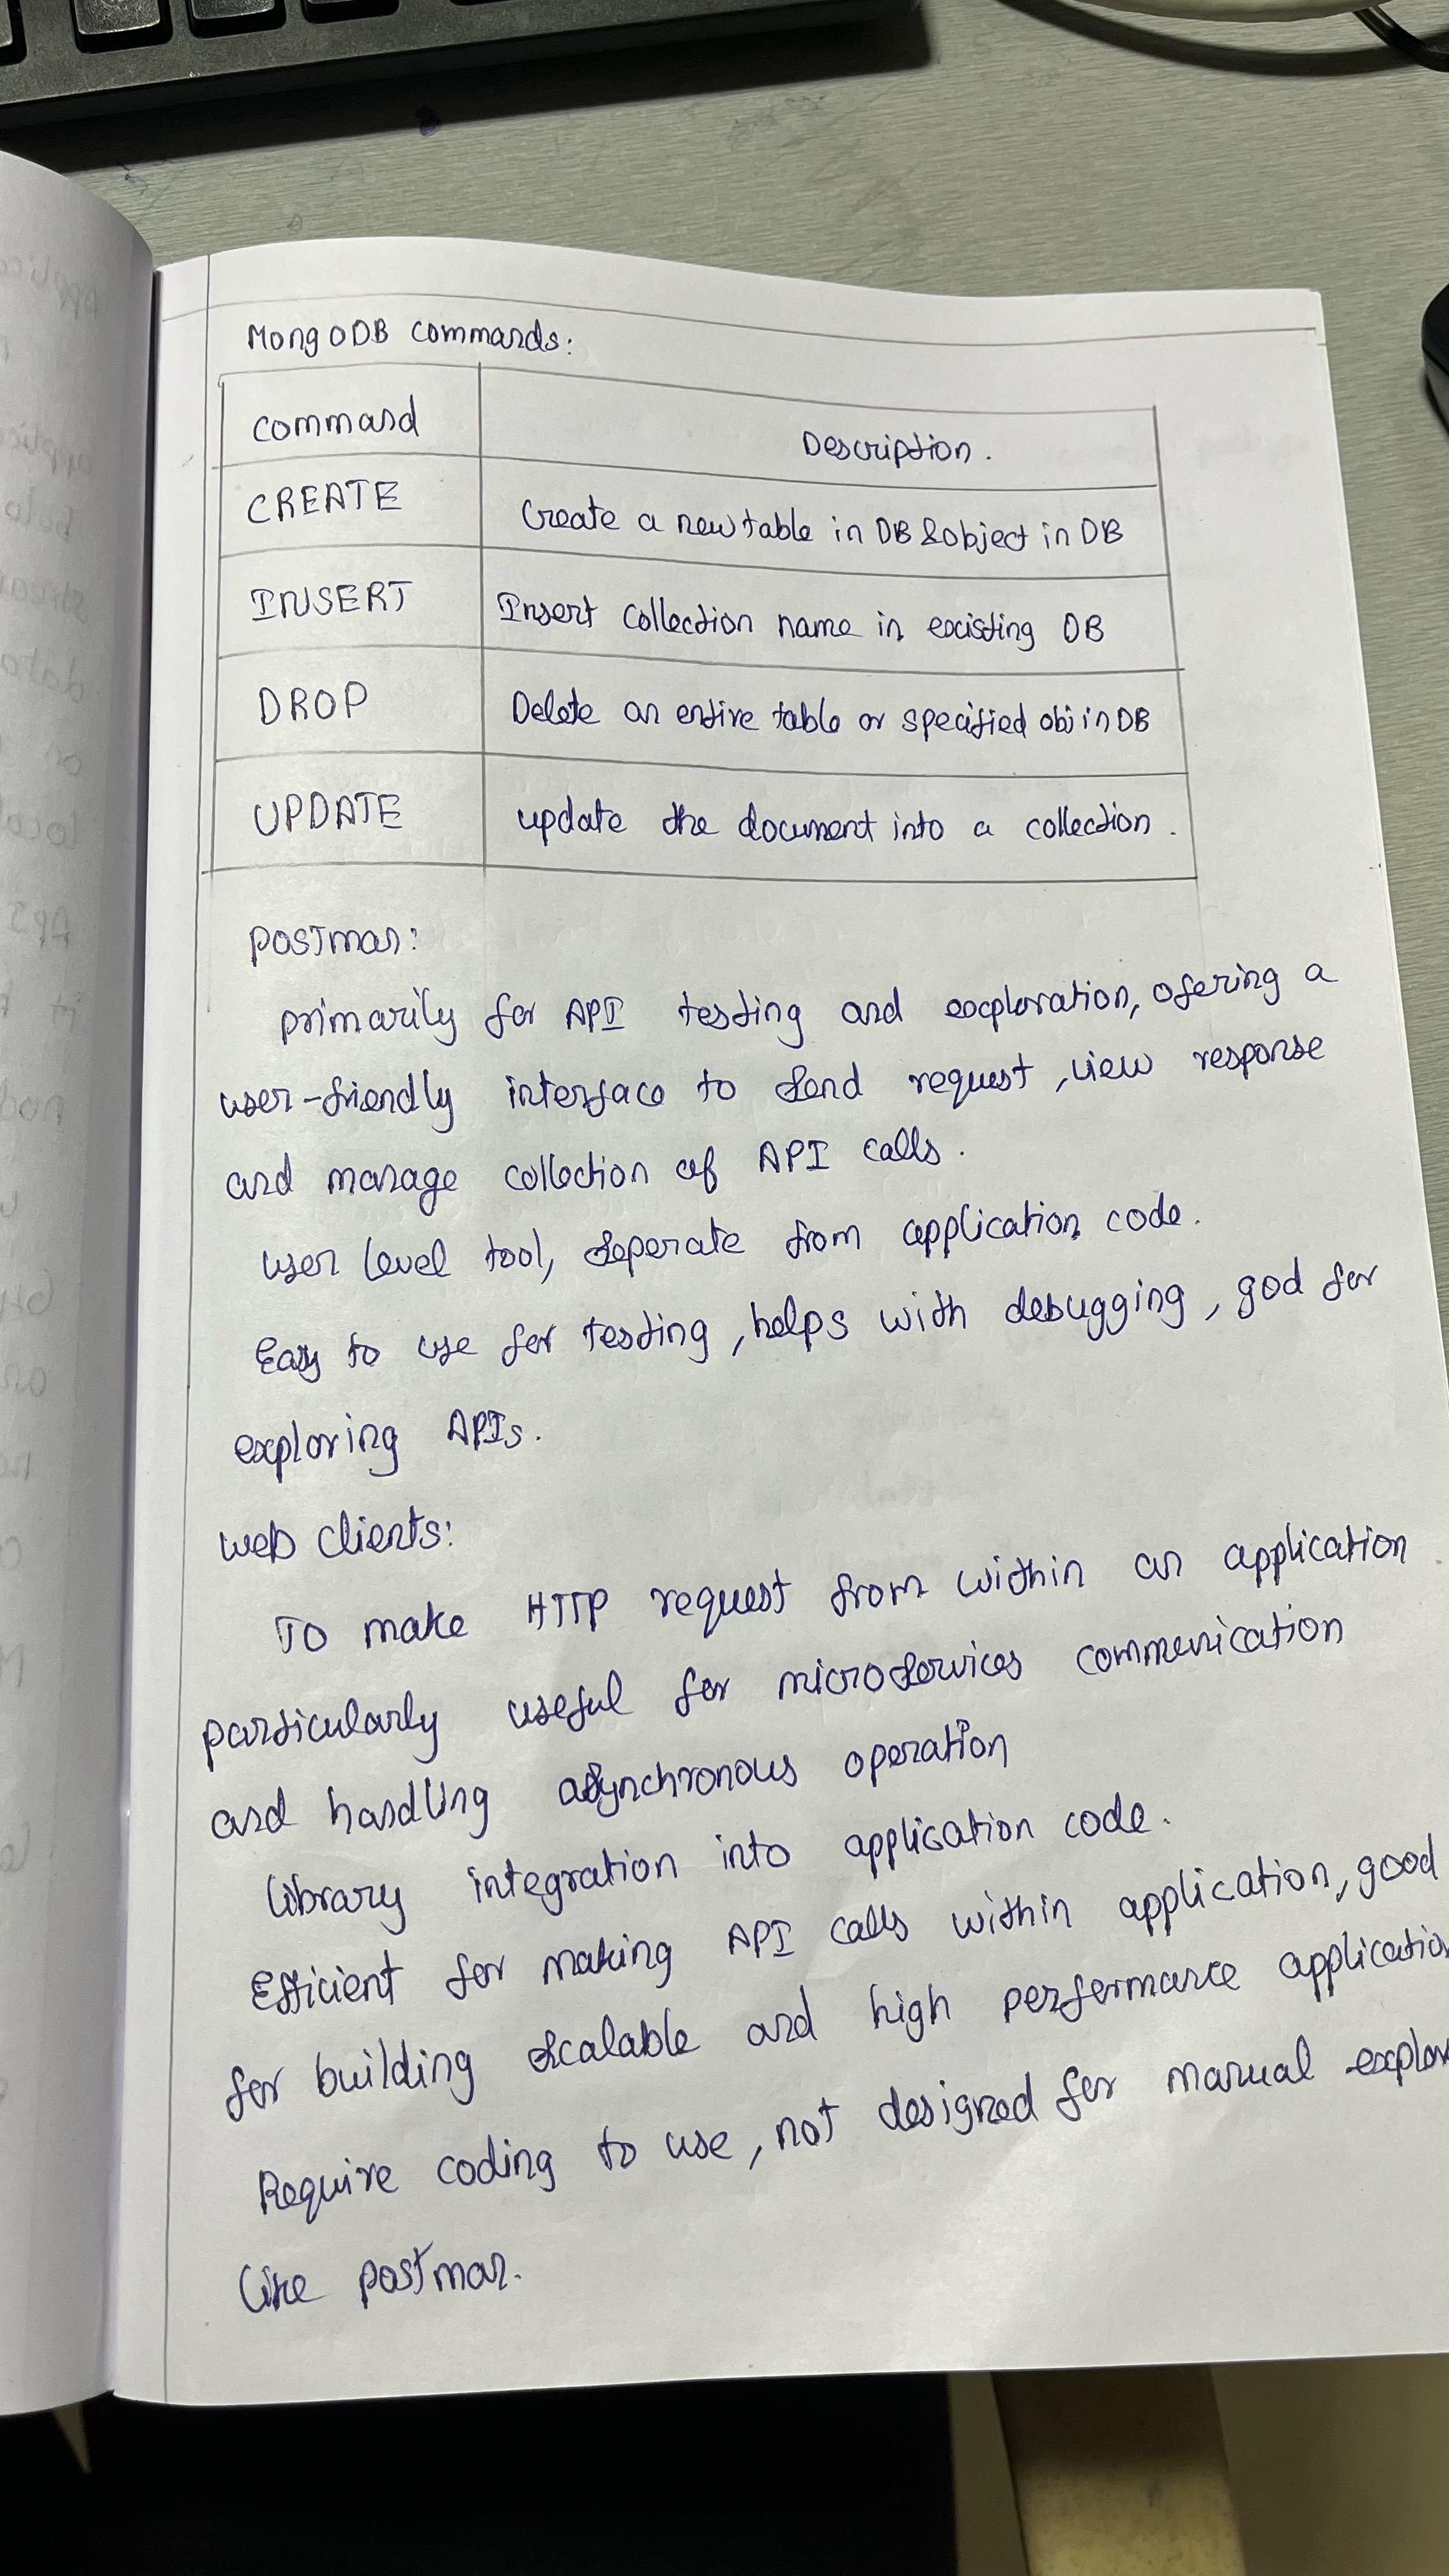 MongoDB commands:
command Description.
CREATE Create a new table in DB & object in DB
INSERT Insert collection name in existing DB
DROP Delete an entire table or specified obj in DB
UPDATE update the document into a collection.
Postman:
primarily for API testing and exploration, ofering a
user-friendly interface to send request, view response
and manage collection of API calls.
user level tool, seperate from application code.
Easy to use for testing, helps with debugging, god for
exploring APIs.
web clients:
To make HTTP request from within an application
particularly useful for microservices communication
and handling asynchronous operation
library integration into application code.
Efficient for making API calls within application, good
for building scalable and high performance applicatio
Require coding to use, not designed for manual explor
like postman.